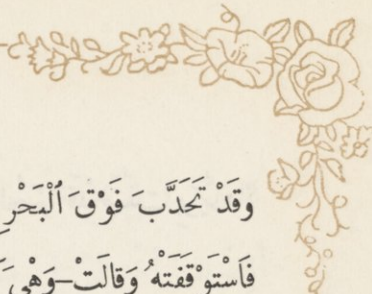 وقَدْ تَحَدَّبَ فَوْقَ ٱلْبَحْرِ
فَٱسْتَوْقَفَتْهُ وَقالَتْ–وَهْيَ